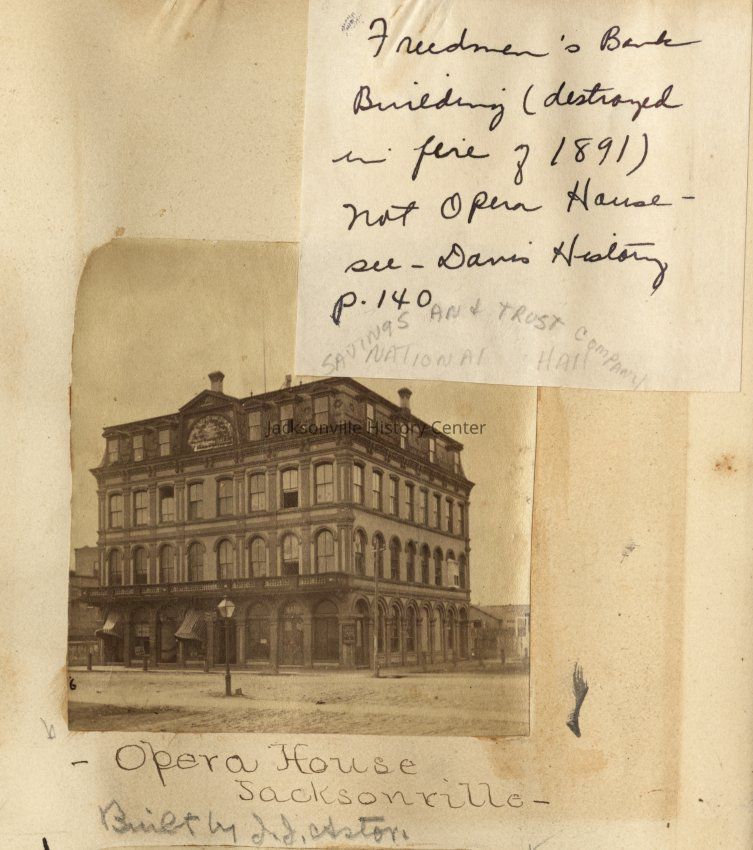 Freedmen's Bank
Building (destroyed
in fire of 1891)
Not Opera House -
see - Davis History
p. 140
SAVINGS AND TRUST COMPANY
NATIONAL HALL
Jacksonville History Center
6
- Opera House
Jacksonville -
Built by J. J. Astor.